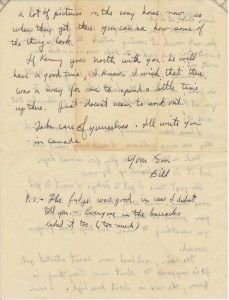 a lot of pictures on the way home now, so
when they get there you can see how some of
the things look.
If Kenny goes north with you he will
have a good time, I know. I wish that there
was a way for me to spend a little time
up there. Just doesn't seem to work out.
Take care of yourselves. I'll write you
in Canada.
Your Son
Bill
P.S. - The fudge was good, in case I didn't
tell you. - Everyone in the barracks
liked it too. (too much)